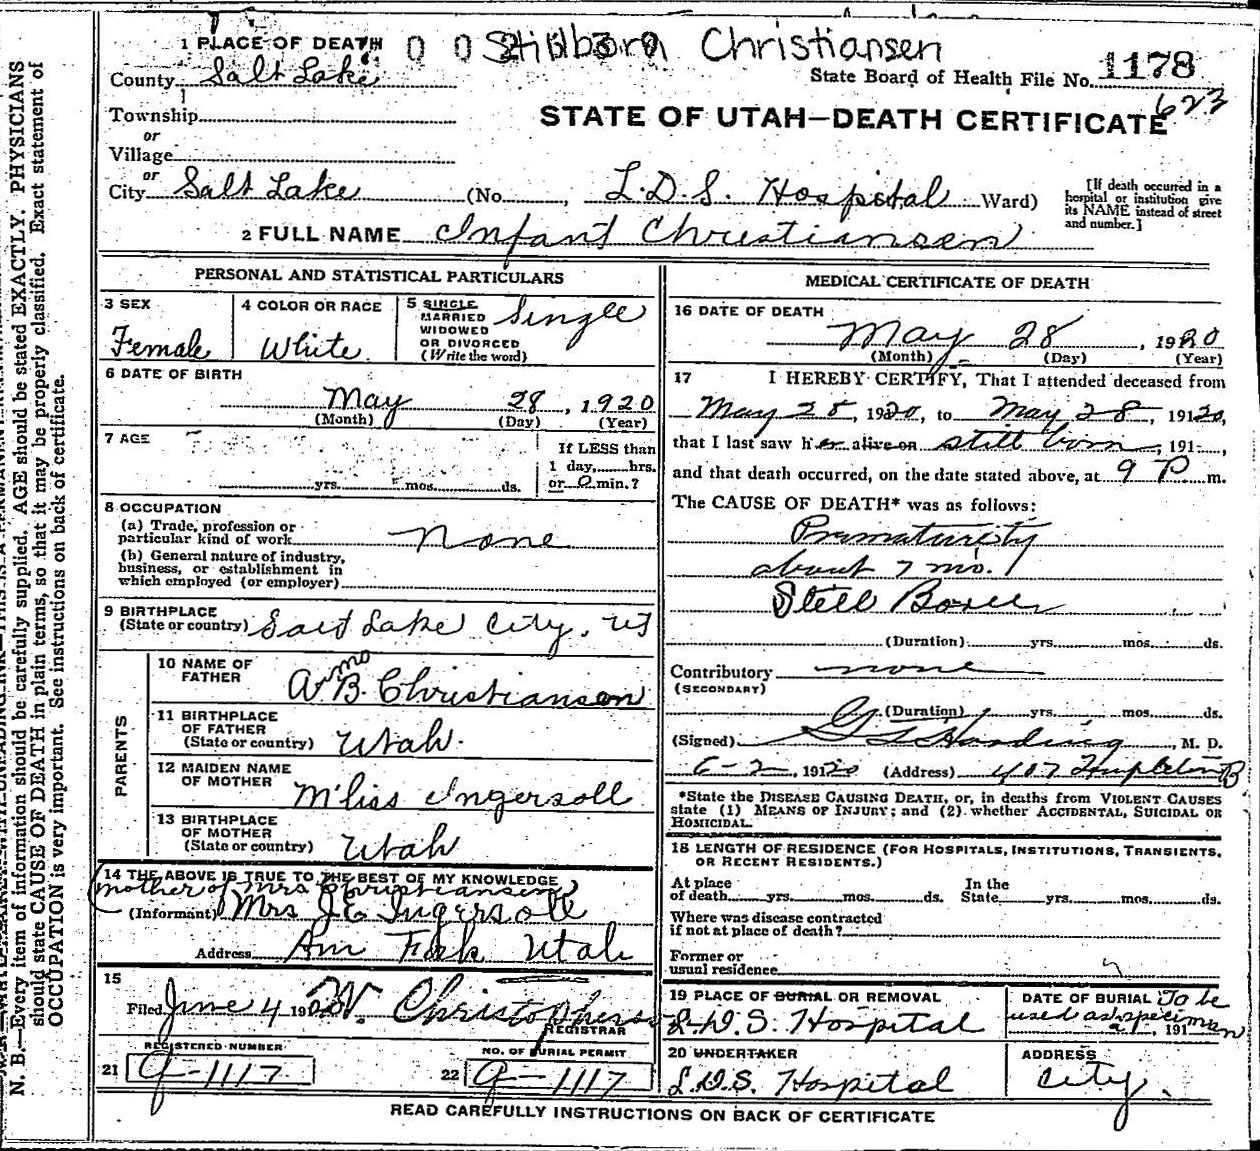 1 PLACE OF DEATH
Stillborn Christiansen
County Salt Lake
State Board of Health File No. 1178
623
Township
or
Village
or
STATE OF UTAH—DEATH CERTIFICATE
City Salt Lake (No. , L.D.S. Hospital Ward)
[If death occurred in a hospital or institution give its NAME instead of street and number.]
2 FULL NAME Infant Christiansen
PERSONAL AND STATISTICAL PARTICULARS
3 SEX
Female
4 COLOR OR RACE
White
5 SINGLE
MARRIED
WIDOWED
OR DIVORCED
(Write the word)
Single
6 DATE OF BIRTH
May 28, 1920
(Month) (Day) (Year)
7 AGE
yrs. mos. ds.
If LESS than
1 day, hrs.
or 0 min.?
8 OCCUPATION
(a) Trade, profession or
particular kind of work None
(b) General nature of industry,
business, or establishment in
which employed (or employer)
9 BIRTHPLACE
(State or country) Salt Lake City, Ut
PARENTS
10 NAME OF
FATHER
A mo B. Christiansen
11 BIRTHPLACE
OF FATHER
(State or country) Utah.
12 MAIDEN NAME
OF MOTHER
M'liss Ingersoll
13 BIRTHPLACE
OF MOTHER
(State or country) Utah
14 THE ABOVE IS TRUE TO THE BEST OF MY KNOWLEDGE
(mother of Mrs Christiansen)
(Informant) Mrs J E Ingersoll
Address Am Fork Utah
15
Filed June 4 19
REGISTRAR
REGISTERED NUMBER
21 9-1117
NO. OF BURIAL PERMIT
22 9-1117
MEDICAL CERTIFICATE OF DEATH
16 DATE OF DEATH
May 28, 1920
(Month) (Day) (Year)
17 I HEREBY CERTIFY, That I attended deceased from
May 28, 1920, to May 28, 1920,
that I last saw her alive on still born, 191 ,
and that death occurred, on the date stated above, at 9 P. m.
The CAUSE OF DEATH* was as follows:
Prematurity
about 7 mo.
Still Born
(Duration) yrs. mos. ds.
Contributory none
(SECONDARY)
(Duration) yrs. mos. ds.
(Signed) G L Harding, M. D.
6-2, 1920 (Address) 407 Templeton B
*State the DISEASE CAUSING DEATH, or, in deaths from VIOLENT CAUSES
state (1) MEANS OF INJURY; and (2) whether ACCIDENTAL, SUICIDAL OR
HOMICIDAL.
18 LENGTH OF RESIDENCE (FOR HOSPITALS, INSTITUTIONS, TRANSIENTS,
OR RECENT RESIDENTS.)
At place
of death yrs. mos. ds.
In the
State yrs. mos. ds.
Where was disease contracted
if not at place of death?
Former or
usual residence
19 PLACE OF BURIAL OR REMOVAL
L.D.S. Hospital
DATE OF BURIAL To be
used as specimen
191
20 UNDERTAKER
L.D.S. Hospital
ADDRESS
City.
READ CAREFULLY INSTRUCTIONS ON BACK OF CERTIFICATE
N. B.—Every item of information should be carefully supplied. AGE should be stated EXACTLY. PHYSICIANS
should state CAUSE OF DEATH in plain terms, so that it may be properly classified. Exact statement of
OCCUPATION is very important. See instructions on back of certificate.